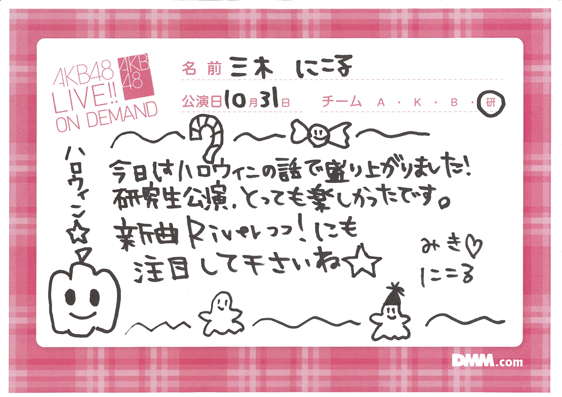 AKB48
LIVE!!
ON DEMAND
AKB
48
名前 三木 にこる
公演日 10月31日 チーム A・K・B・研
ハロウィン☆
今日はハロウィンの話で盛り上がりました!
研究生公演、とっても楽しかったです。
新曲Riverっっ!にも
注目して下さいね☆
みき♡
にこる
DMM.com